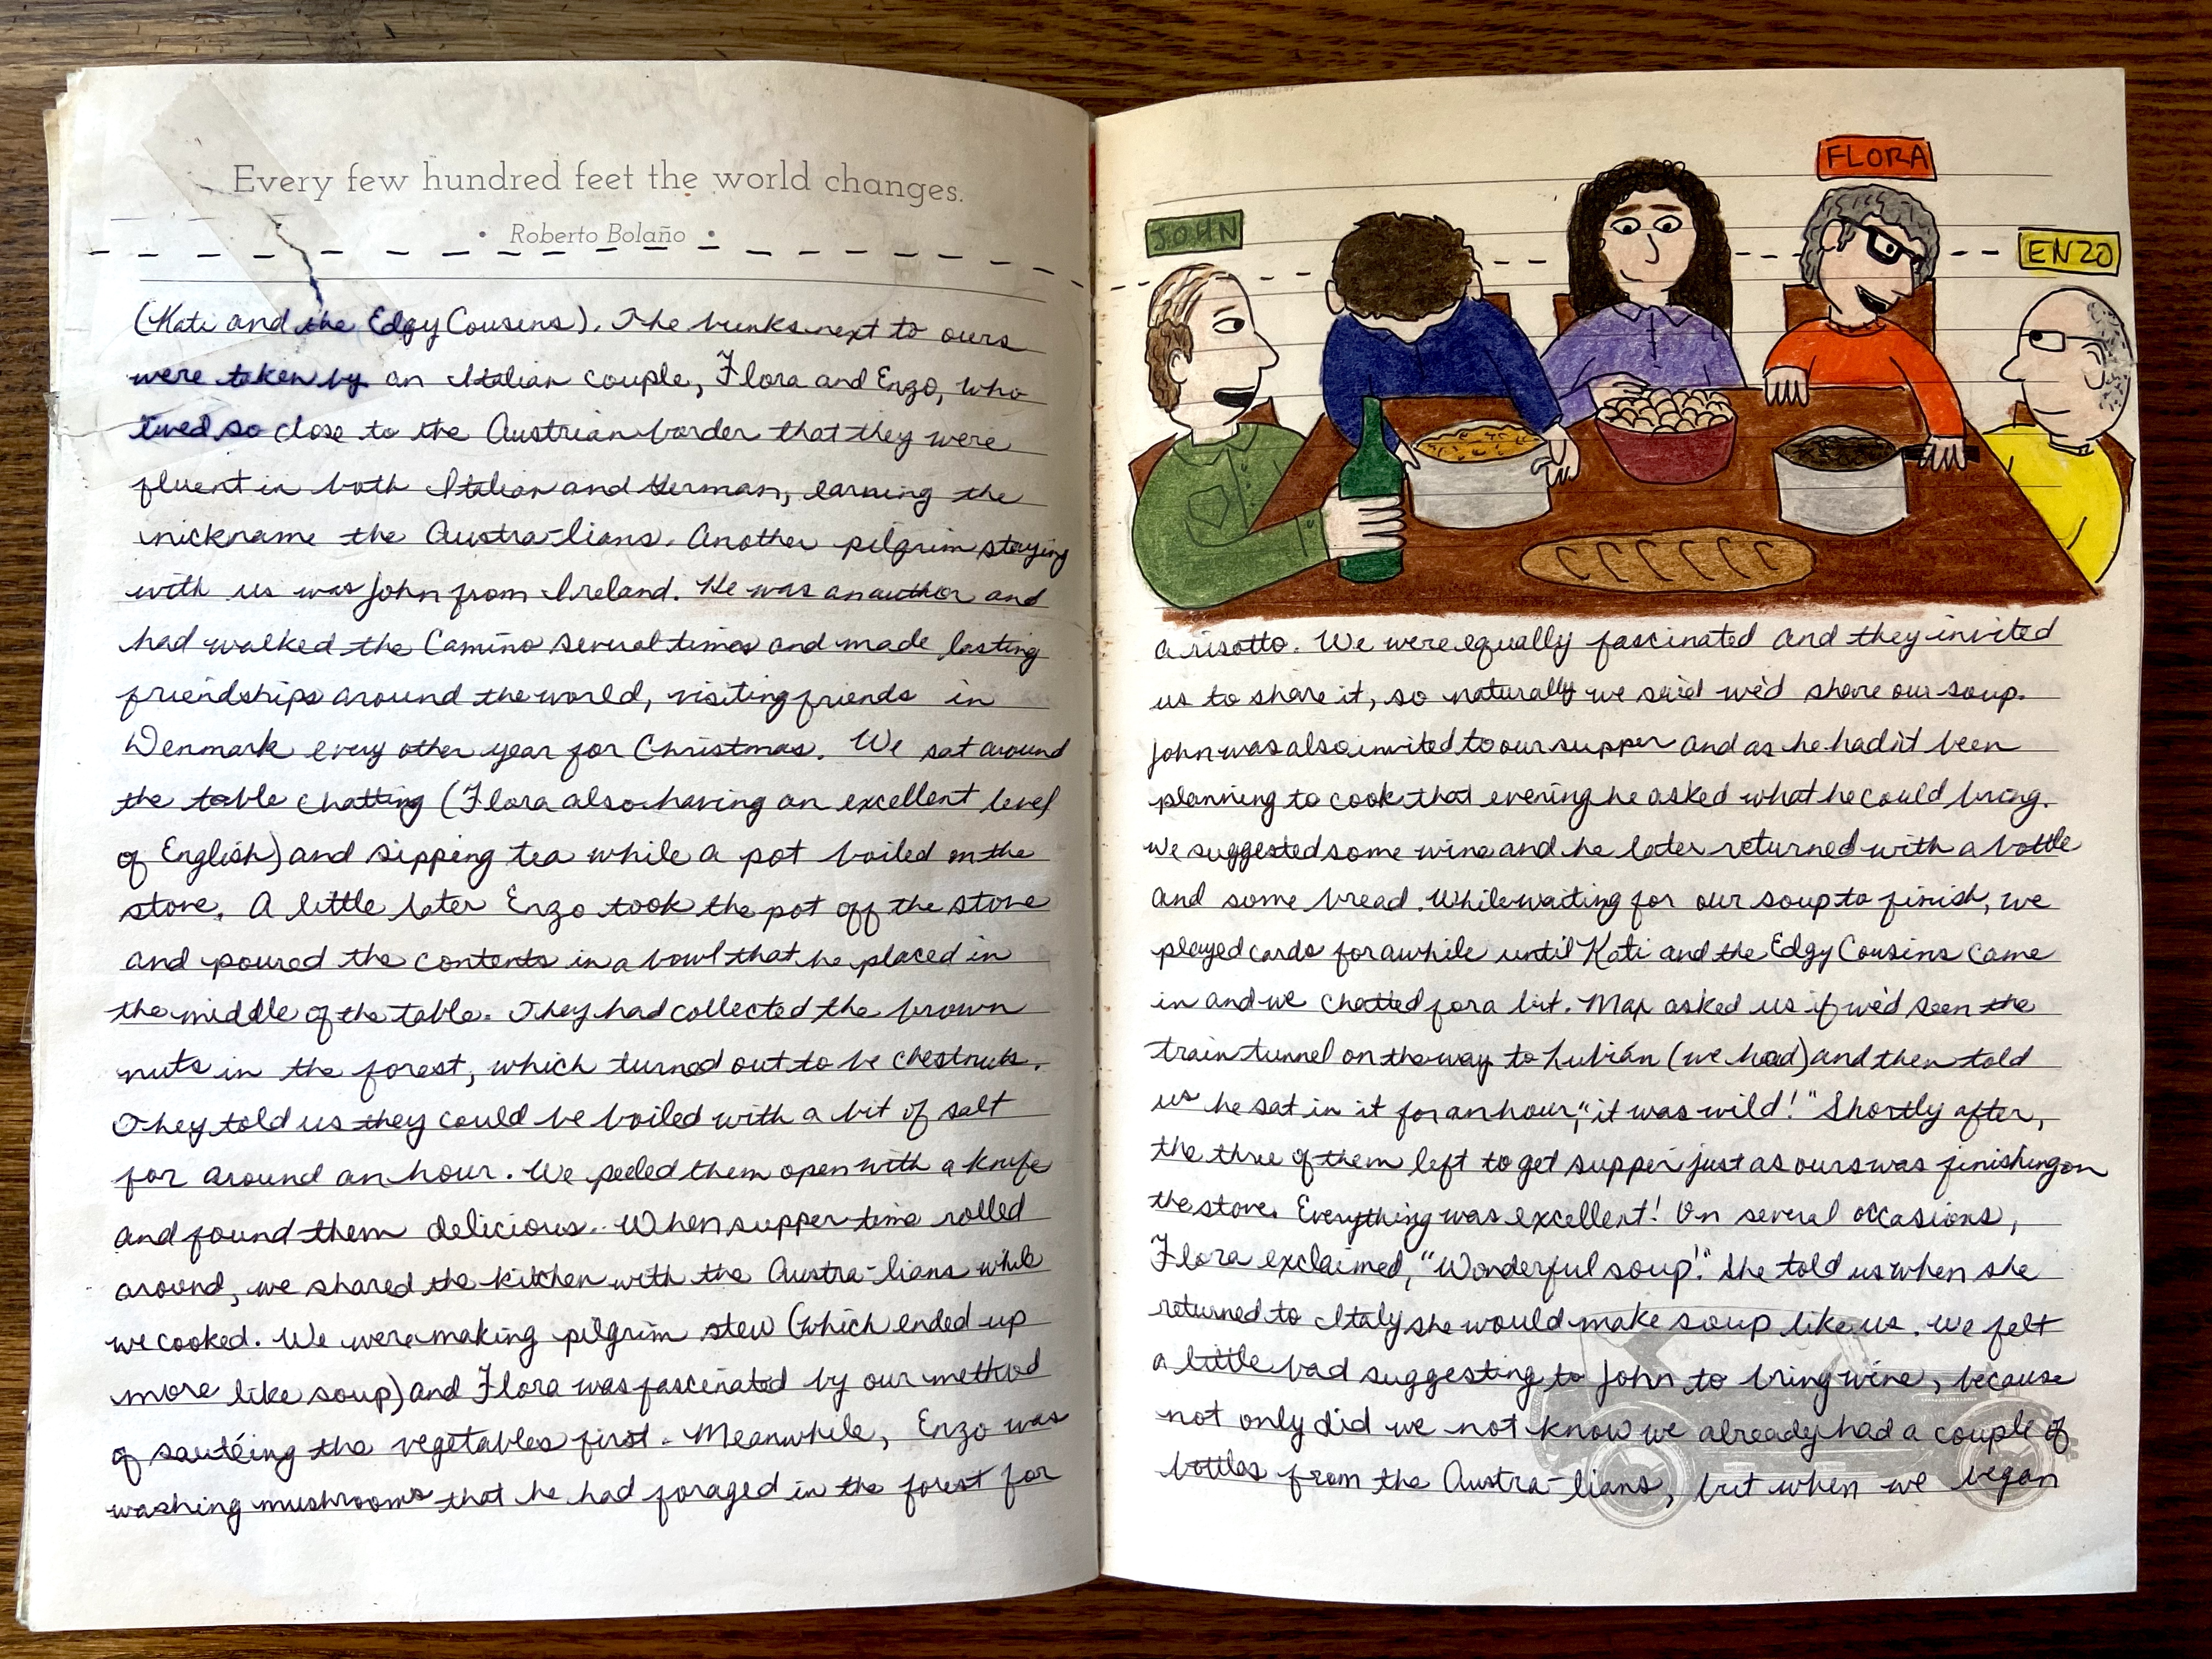 Every few hundred feet the world changes.
• Roberto Bolaño •
(Kati and the Edgy Cousins). The bunks next to ours
were taken by an Italian couple, Flora and Enzo, who
lived so close to the Austrian border that they were
fluent in both Italian and German, earning the
nickname the Austra-lians. Another pilgrim staying
with us was John from Ireland. He was an author and
had walked the Camino several times and made lasting
friendships around the world, visiting friends in
Denmark every other year for Christmas. We sat around
the table chatting (Flora also having an excellent level
of English) and sipping tea while a pot boiled on the
stove. A little later Enzo took the pot off the stove
and poured the contents in a bowl that he placed in
the middle of the table. They had collected the brown
nuts in the forest, which turned out to be chestnuts.
They told us they could be boiled with a bit of salt
for around an hour. We peeled them open with a knife
and found them delicious. When supper time rolled
around, we shared the kitchen with the Austra-lians while
we cooked. We were making pilgrim stew (which ended up
more like soup) and Flora was fascinated by our method
of sautéing the vegetables first. Meanwhile, Enzo was
washing mushrooms that he had foraged in the forest for
JOHN
FLORA
ENZO
a risotto. We were equally fascinated and they invited
us to share it, so naturally we said we'd share our soup.
John was also invited to our supper and as he hadn't been
planning to cook that evening he asked what he could bring.
We suggested some wine and he later returned with a bottle
and some bread. While waiting for our soup to finish, we
played cards for awhile until Kati and the Edgy Cousins came
in and we chatted for a bit. Max asked us if we'd seen the
train tunnel on the way to Lubián (we had) and then told
us he sat in it for an hour, "it was wild!" Shortly after,
the three of them left to get supper just as ours was finishing on
the stove. Everything was excellent! On several occasions,
Flora exclaimed, "Wonderful soup!" She told us when she
returned to Italy she would make soup like us. We felt
a little bad suggesting to John to bring wine, because
not only did we not know we already had a couple of
bottles from the Austra-lians, but when we began